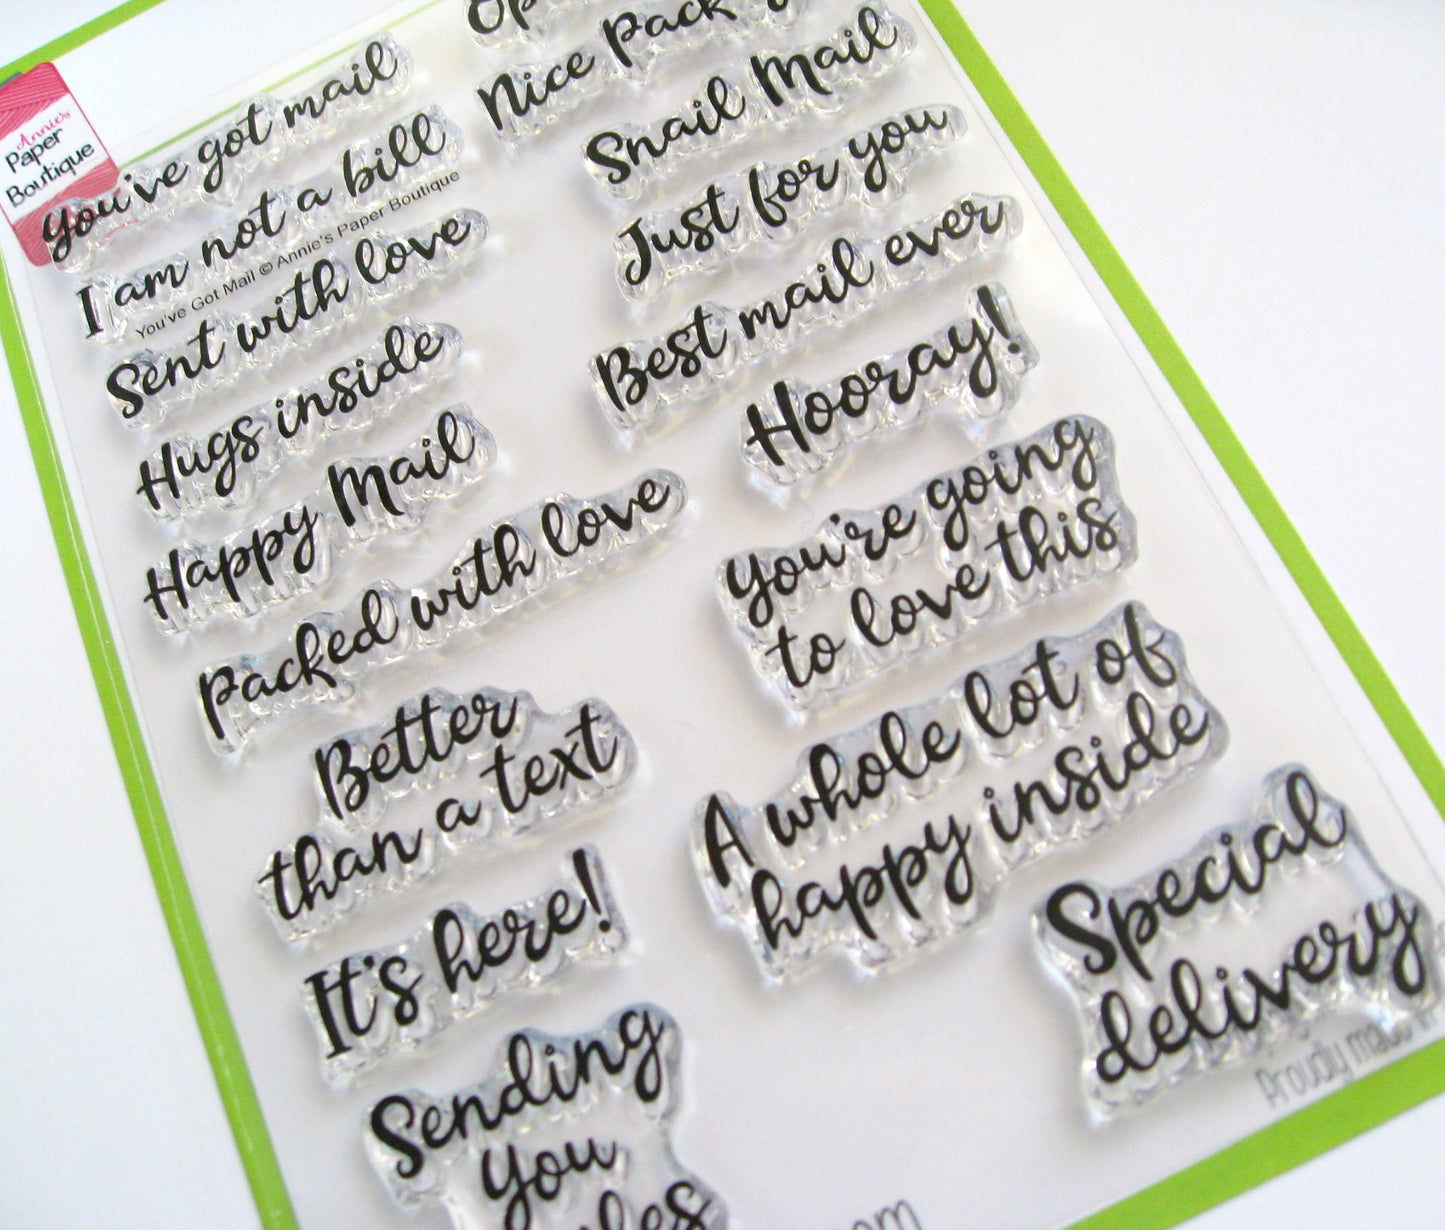 Annie's
Paper
Boutique
You've got mail
I am not a bill
You've Got Mail © Annie's Paper Boutique
Sent with love
Hugs inside
Happy Mail
Packed with love
Better
than a text
It's here!
Sending
you
Nice
Snail Mail
Just for you
Best mail ever
Hooray!
You're going
to love this
A whole lot of
happy inside
Special
delivery
Proudly